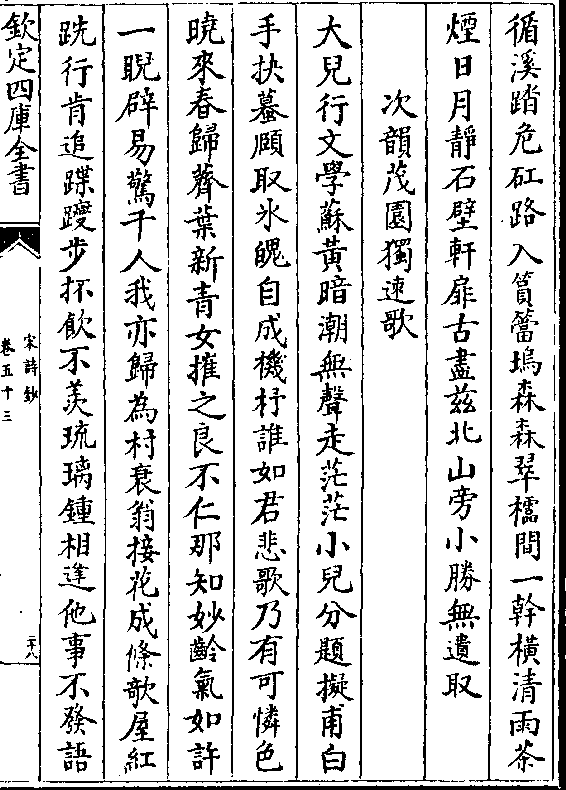 循溪踏危矼路入篔簹塢森森翠櫺間一幹橫清雨茶
煙日月靜石壁軒扉古盡玆北山旁小勝無遺取
次韻茂園獨速歌
大兒行文學蘇黃暗潮無聲走茫茫小兒分題擬甫白
手抉蟇頤取氷魄自成機杼誰如君悲歌乃有可憐色
曉來春歸薺葉新青女摧之良不仁那知妙齡氣如許
一睨辟易驚千人我亦歸為村衰翁接花成條歌屋紅
跣行肯追蹀躞步抔飲不羨琉璃鍾相逢他事不發語
欽定四庫全書
宋詩鈔
卷五十三
二十八